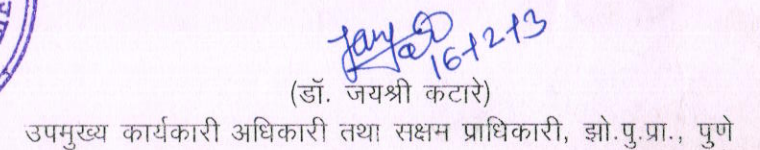 16/2/13
(डॉ. जयश्री कटारे)
उपमुख्य कार्यकारी अधिकारी तथा सक्षम प्राधिकारी, झो.पु.प्रा., पुणे